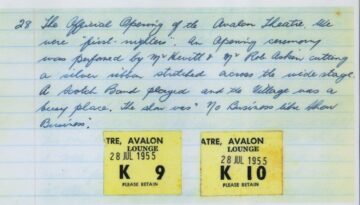 28 The Official Opening of the Avalon Theatre. We
were "first-nighters". An Opening ceremony
was performed by Mr Hewitt & Mr Rob Askin cutting
a silver ribbon stretched across the wide stage.
A Scotch Band played and the Village was a
busy place. The show was "No Business like Show
Business".
TRE, AVALON
LOUNGE
28 JUL 1955
K 9
PLEASE RETAIN
ATRE, AVALON
LOUNGE
28 JUL 1955
K 10
PLEASE RETAIN